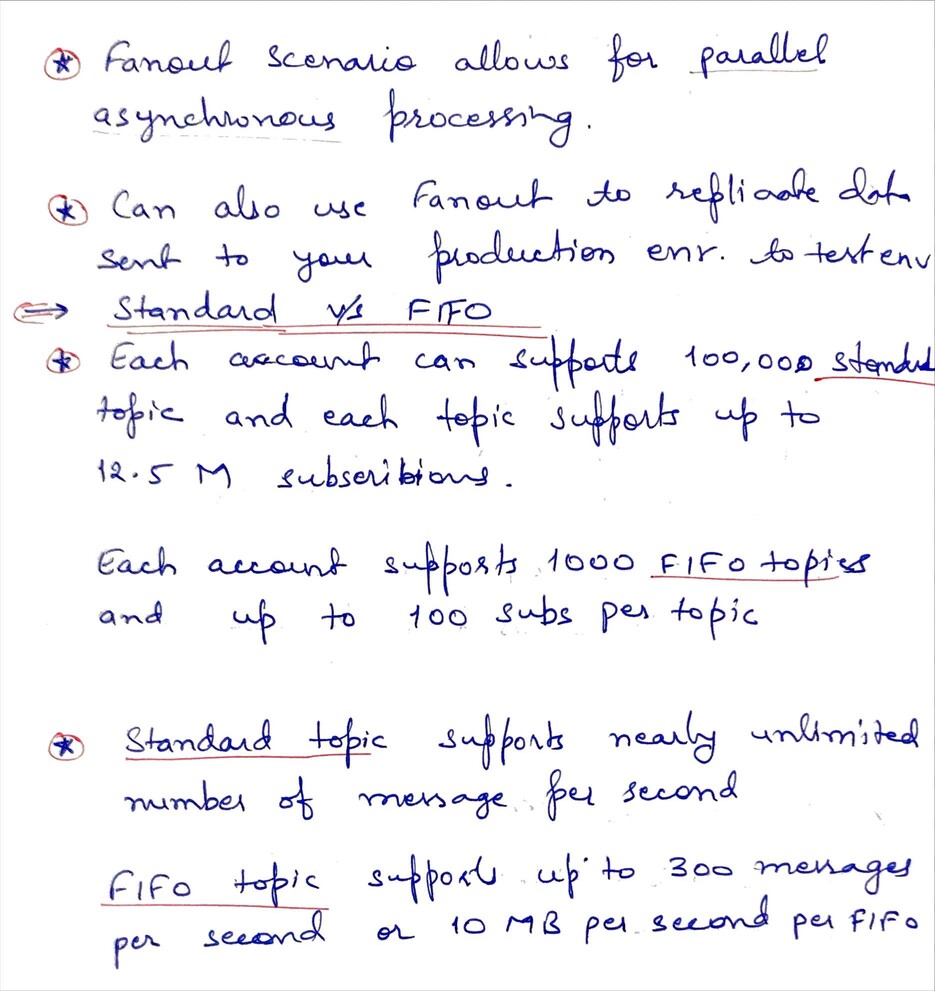 Fanout scenario allows for parallel
asynchronous processing.
Can also use Fanout to replicate data
sent to your production env. to test env
⇒ Standard v/s FIFO
Each account can supports 100,000 standard
topic and each topic supports up to
12.5 M subscribions.
Each account supports 1000 FIFO topics
and up to 100 subs per topic
Standard topic supports nearly unlimited
number of message per second
FIFO topic supports up to 300 messages
per second or 10 MB per second per FIFO